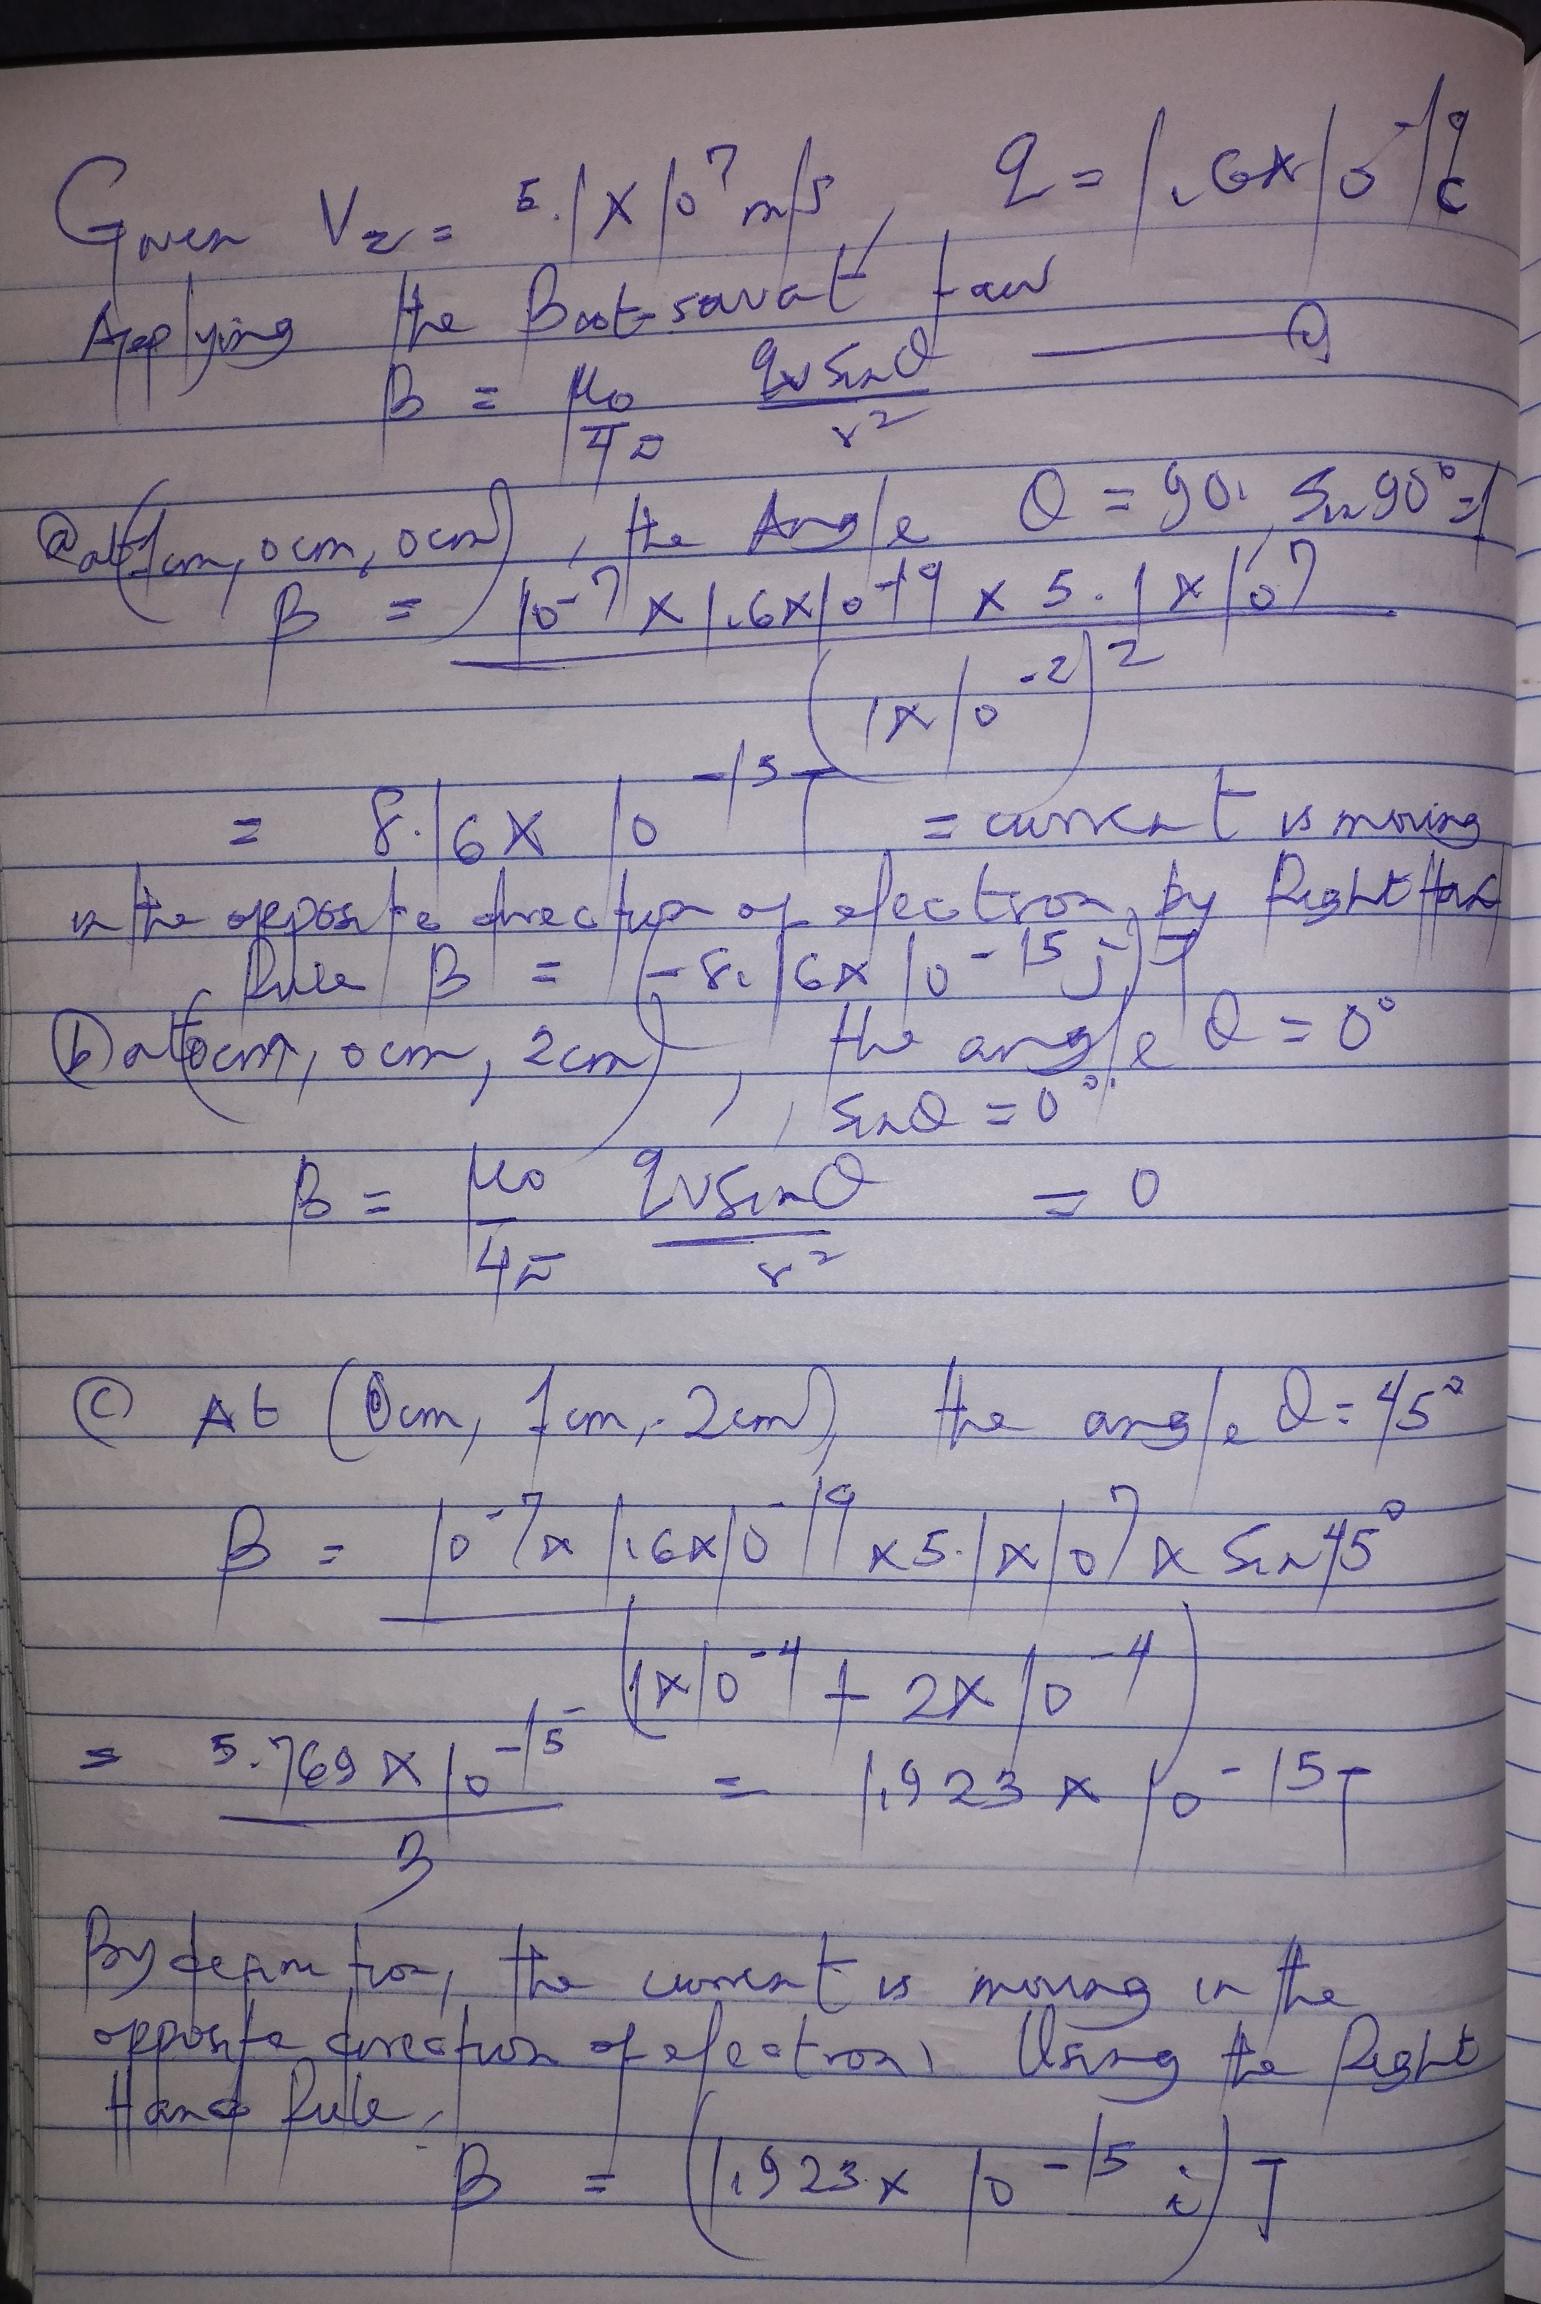 Given Vz = 5.1 x 10^7 m/s, q = 1.6x10^-19 c
Applying the Boot-savat law
B = μo/4π qvsinθ/r^2
@ at (1cm, 0cm, 0cm), the Angle θ = 90. Sin90°=1
B = 10^-7 x 1.6x10^-19 x 5.1x10^7
(1x10^-2)^2
= 8.16x10^-15 T = current is moving
in the opposite direction of electron, by Right Hand
Rule B = (-8.16x10^-15 j) T
(b) at (0cm, 0cm, 2cm), the angle θ = 0°
Sinθ = 0°.
B = μo/4π qvsinθ/r^2 = 0
(c) At (0cm, 1cm, -2cm), the angle θ = 45°
B = 10^-7 x 1.6x10^-19 x 5.1x10^7 x Sin45°
(1x10^-4 + 2x10^-4)
= 5.769x10^-15/3 = 1.923x10^-15 T
By definition, the current is moving in the
opposite direction of electron. Using the Right
Hand Rule,
B = (1.923x10^-15 i) T